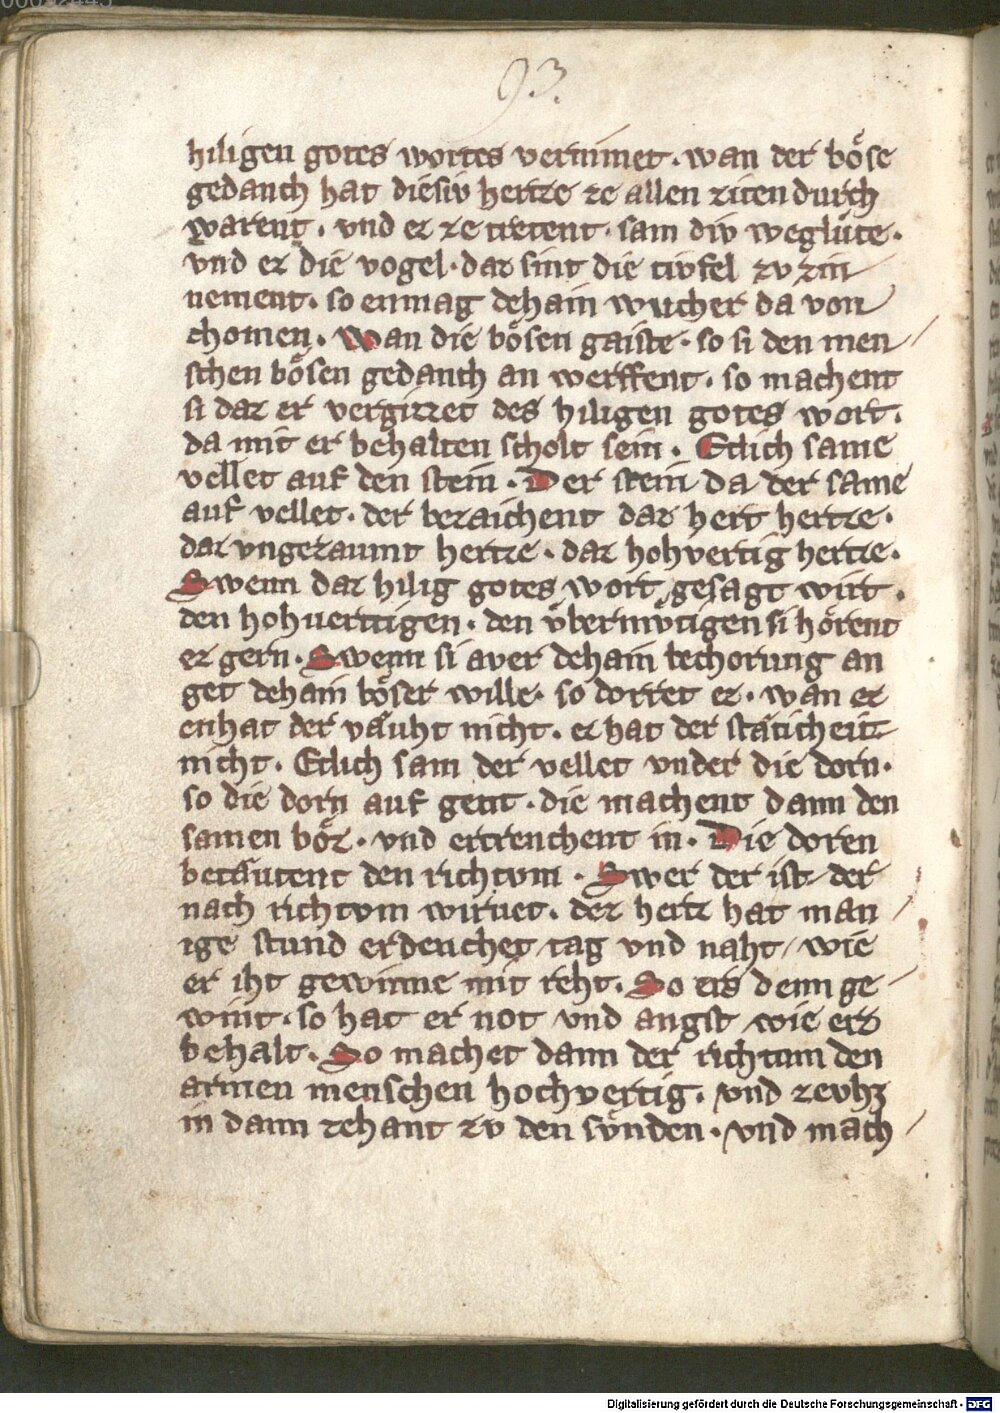 93.
hiligen gotes wortes vernimet. wan der böse
gedanch hat diesiv hertze ze allen ziten durch
warent. vnd ez ze tretent. sam div weglüte.
vnd ez die vogel. daz sint die tivfel zv zin
nement. so enmag dehain wucher da von
chomen. Wan die bösen gaiste. so si den men
schen bösen gedanch an werffent. so machent
si daz er vergizzet des hiligen gotes wort.
da mit er behalten scholt sein. Etlich same
vellet auf den stein. Der stein da der same
auf vellet. der bezaichent daz hert hertze.
daz vngezaumt hertze. daz hohvertig hertze.
Swenn daz hilig gotes wort gesagt wirt.
den hohuerttigen. den vbermvtigen si hörent
ez gern. Swenn si aver dehain bechorung an
get dehain böser wille. so dorret ez. wan er
enhat der väuht nicht. er hat der stäticheit
nicht. Etlich sam der vellet vnder die dorn.
so die dorn auf gent. die machent dann den
samen böz. vnd ertrenchent in. Die doren
betäutent den richtvm. Swer der ist der
nach richtvm wirvet. dez hertz hat man
ige stund erdenchet tag vnd naht wie
er iht gewinne mit reht. So ers denn ge
wint. so hat er not vnd angst wie erz
behalt. So machet dann der richtum den
armen menschen hochvertig. vnd zevhz
in dann zehant zv den svnden. vnd mach
Digitalisierung gefördert durch die Deutsche Forschungsgemeinschaft - DFG